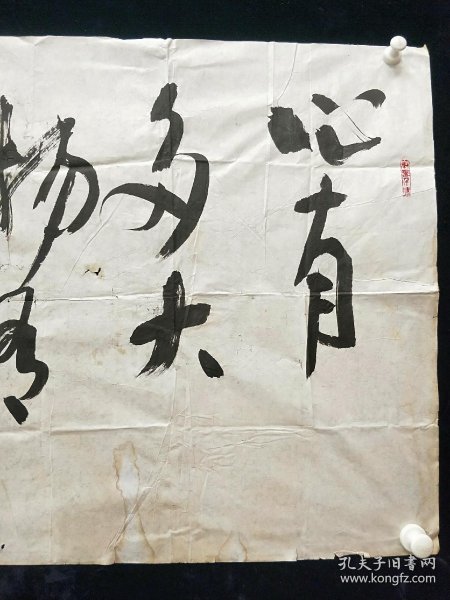 心有
多大
场有
孔夫子旧书网
www.kongfz.com